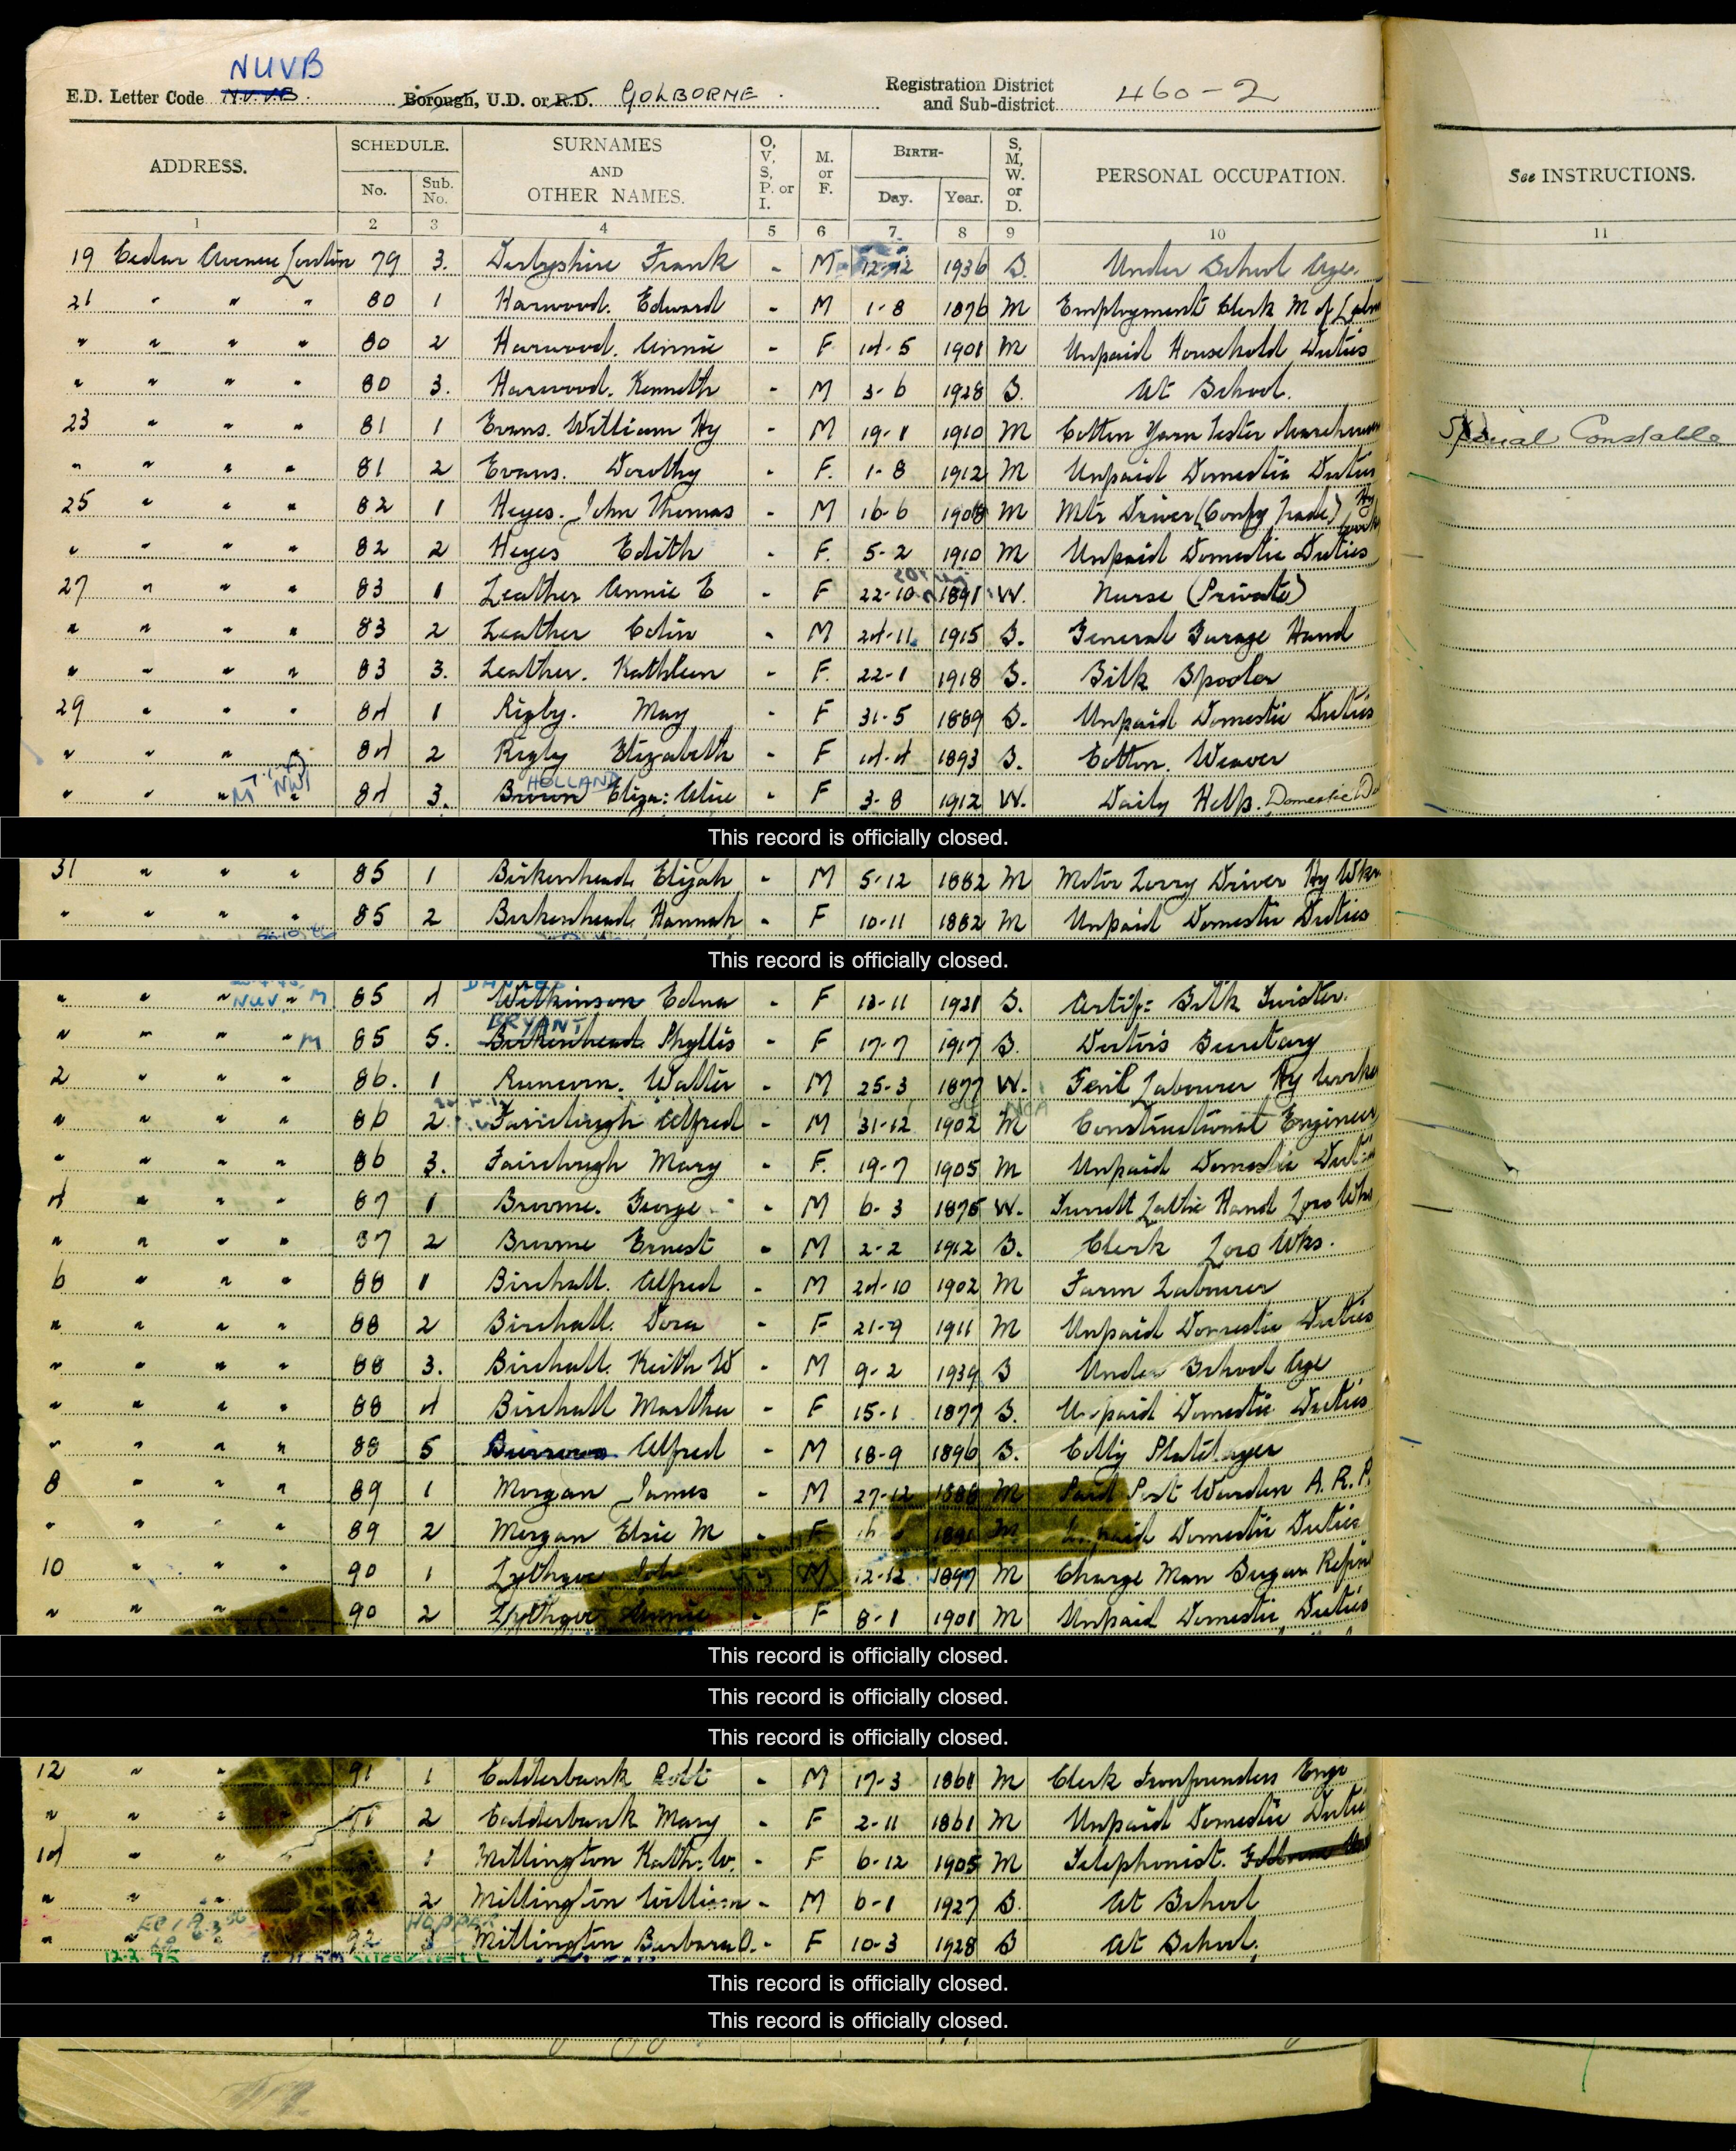 NUVB
E.D. Letter Code N.U.V.B. Borough, U.D. or R.D. GOLBORNE. Registration District and Sub-district 460-2
ADDRESS. SCHEDULE. No. Sub. No. SURNAMES AND OTHER NAMES. O, V, S, P. or I. M. or F. BIRTH- Day. Year. S, M, W. or D. PERSONAL OCCUPATION. See INSTRUCTIONS.
1 2 3 4 5 6 7 8 9 10 11
19 Cedar Avenue Lowton 79 3. Derbyshire Frank - M 12-12 1936 S. Under School Age.
21 " " " 80 1 Harwood. Edward - M 1-8 1876 M Employment Clerk M of
" " " " 80 2 Harwood. Annie - F 14-5 1901 M Unpaid Household Duties
" " " " 80 3. Harwood. Kenneth - M 3-6 1928 S. At School.
23 " " " 81 1 Evans. William Hy - M 19-1 1910 M Cotton Yarn Tester Special Constable
" " " " 81 2 Evans. Dorothy - F. 1-8 1912 M Unpaid Domestic Duties
25 " " " 82 1 Heyes. John Thomas - M 16-6 1908 M Mtr Driver (Confy Trade) Hy
" " " " 82 2 Heyes Edith - F. 5-2 1910 M Unpaid Domestic Duties
27 " " " 83 1 Leather Annie E - F 22-10 1891 W. Nurse (Private)
" " " " 83 2 Leather Colin - M 24-11 1915 S. General Garage Hand
" " " " 83 3. Leather. Kathleen - F. 22-1 1918 S. Silk Spooler
29 " " " 84 1 Rigby. May - F 31-5 1889 S. Unpaid Domestic Duties
" " " " 84 2 Rigby Elizabeth - F 14-4 1893 S. Cotton. Weaver
HOLLAND
" " " " 84 3. Brown Eliza: Alice - F 3-8 1912 W. Daily Help. Domestic
This record is officially closed.
31 " " " 85 1 Birkenhead Elijah - M 5-12 1882 M Motor Lorry Driver Hy Wkr
" " " " 85 2 Birkenhead Hannah - F 10-11 1882 M Unpaid Domestic Duties
This record is officially closed.
" " " NUV " M 85 4 Wilkinson Edna - F 13-11 1921 S. Artif: Silk Twister.
BRYANT
" " " " M 85 5. Birkenhead Phyllis - F 17-7 1917 S. Doctors Secretary
2 " " " 86. 1 Runcorn. Walter - M 25-3 1877 W. Genl Labourer Hy Worker
" " " " 86 2 Fairclough Alfred - M 31-12 1902 M Constructional Engineer
" " " " 86 3. Fairclough Mary - F. 19-7 1905 M Unpaid Domestic Duties
4 " " " 87 1 Broome. George - M 6-3 1875 W. Turrett Lathe Hand Loco Wks
" " " " 87 2 Broome Ernest - M 2-2 1912 S. Clerk Loco Wks.
6 " " " 88 1 Birchall. Alfred - M 24-10 1902 M Farm Labourer
" " " " 88 2 Birchall. Dora - F 21-9 1911 M Unpaid Domestic Duties
" " " " 88 3. Birchall. Keith W - M 9-2 1939 S Under School Age
" " " " 88 4 Birchall Martha - F 15-1 1877 S. Unpaid Domestic Duties
" " " " 88 5 Burrows Alfred - M 18-9 1896 S. Colly Platelayer
8 " " " 89 1 Morgan James - M 27-12 1888 M Paid Post Warden A.R.P.
" " " " 89 2 Morgan Elsie M - F 1891 M Unpaid Domestic Duties
10 " " " 90 1 Lythgoe John - M 12-12 1897 M Charge Man Sugar Refin
" " " " 90 2 Lythgoe Annie - F 8-1 1901 M Unpaid Domestic Duties
This record is officially closed.
This record is officially closed.
This record is officially closed.
12 " " 91 1 Calderbank Robt - M 17-3 1861 M Clerk Ironfounders Engr
" " " 91 2 Calderbank Mary - F 2-11 1861 M Unpaid Domestic Duties
14 " " 1 Millington Kath: W. - F 6-12 1905 M Telephonist.
" " " 2 Millington William - M 6-1 1927 S. At School
HOPPER
" " " 92 3 Millington Barbara A. - F 10-3 1928 S At School.
12.3.75
This record is officially closed.
This record is officially closed.